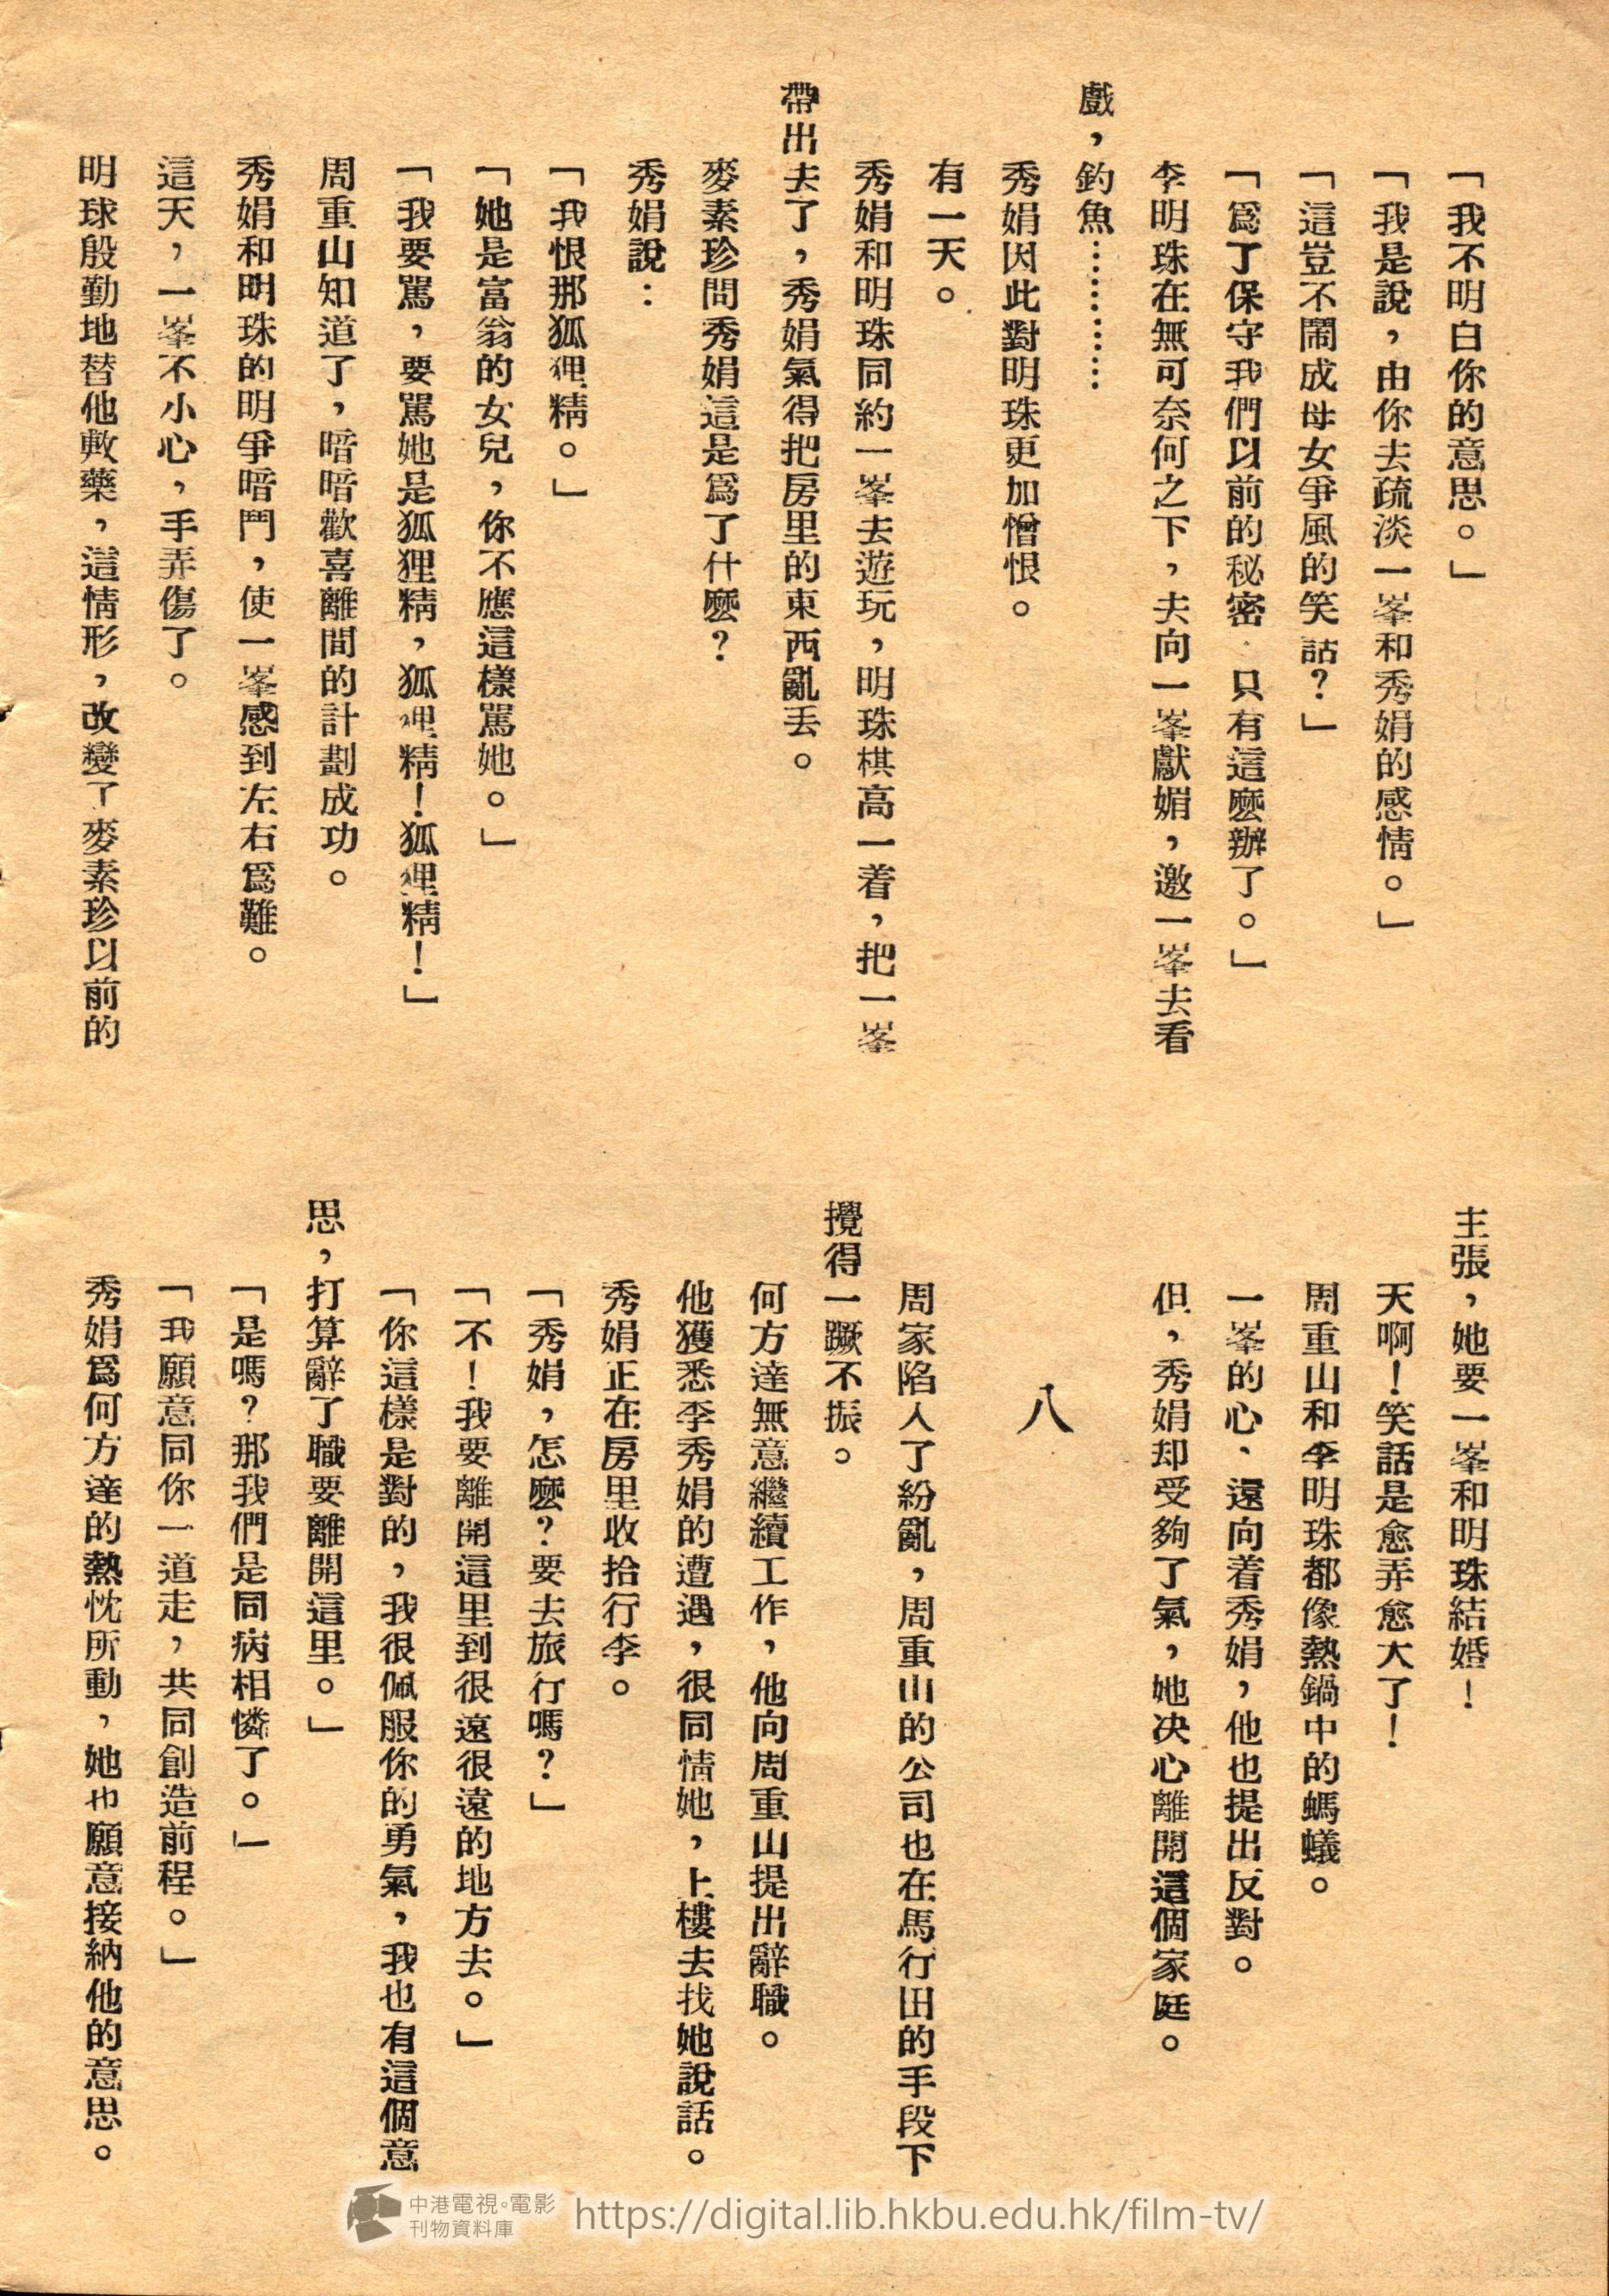 「我不明白你的意思。」
「我是說，由你去疏淡一峯和秀娟的感情。」
「這豈不鬧成母女爭風的笑話？」
「爲了保守我們以前的秘密．只有這麽辦了。」
李明珠在無可奈何之下，夫向一峯獻媚，邀一峯去看
戲，釣魚…………
秀娟因此對明珠更加憎恨。
有一天。
秀娟和明珠同約一峯去遊玩，明珠棋高一着，把一峯
帶出去了，秀娟氣得把房里的東西亂丢。
麥素珍問秀娟這是爲了什麽？
秀娟說：
「我恨那狐狸精。」
「她是富翁的女兒，你不應這樣罵她。」
「我要罵，要罵她是狐狸精，狐狸精！狐狸精！」
周重山知道了，暗暗歡喜離間的計劃成功。
秀娟和明珠的明爭暗鬥，使一峯感到左右爲難。
這天，一峯不小心，手弄傷了。
明球殷勤地替他敷藥，這情形，改變了麥素珍以前的
主張，她要一峯和明珠結婚！
天啊！笑話是愈弄愈大了！
周重山和李明珠都像熱鍋中的螞蟻。
一峯的心、還向着秀娟，他也提出反對。
但，秀娟却受夠了氣，她決心離開這個家庭。
八
周家陷入了紛亂，周重山的公司也在馬行田的手段下
攪得一蹶不振。
何方達無意繼續工作，他向周重山提出辭職。
他獲悉李秀娟的遭遇，很同情她，上樓去找她說話。
秀娟正在房里收拾行李。
「秀娟，怎麽？要去旅行嗎？」
「不！我要離開這里到很遠很遠的地方去。」
「你這樣是對的，我很佩服你的勇氣，我也有這個意
思，打算辭了職要離開這里。」
「是嗎？那我們是同病相憐了。」
「我願意同你一道走，共同創造前程。」
秀娟爲何方達的熱忱所動，她也願意接納他的意思。
中港電視。電影
刊物資料庫
https://digital.lib.hkbu.edu.hk/film-tv/